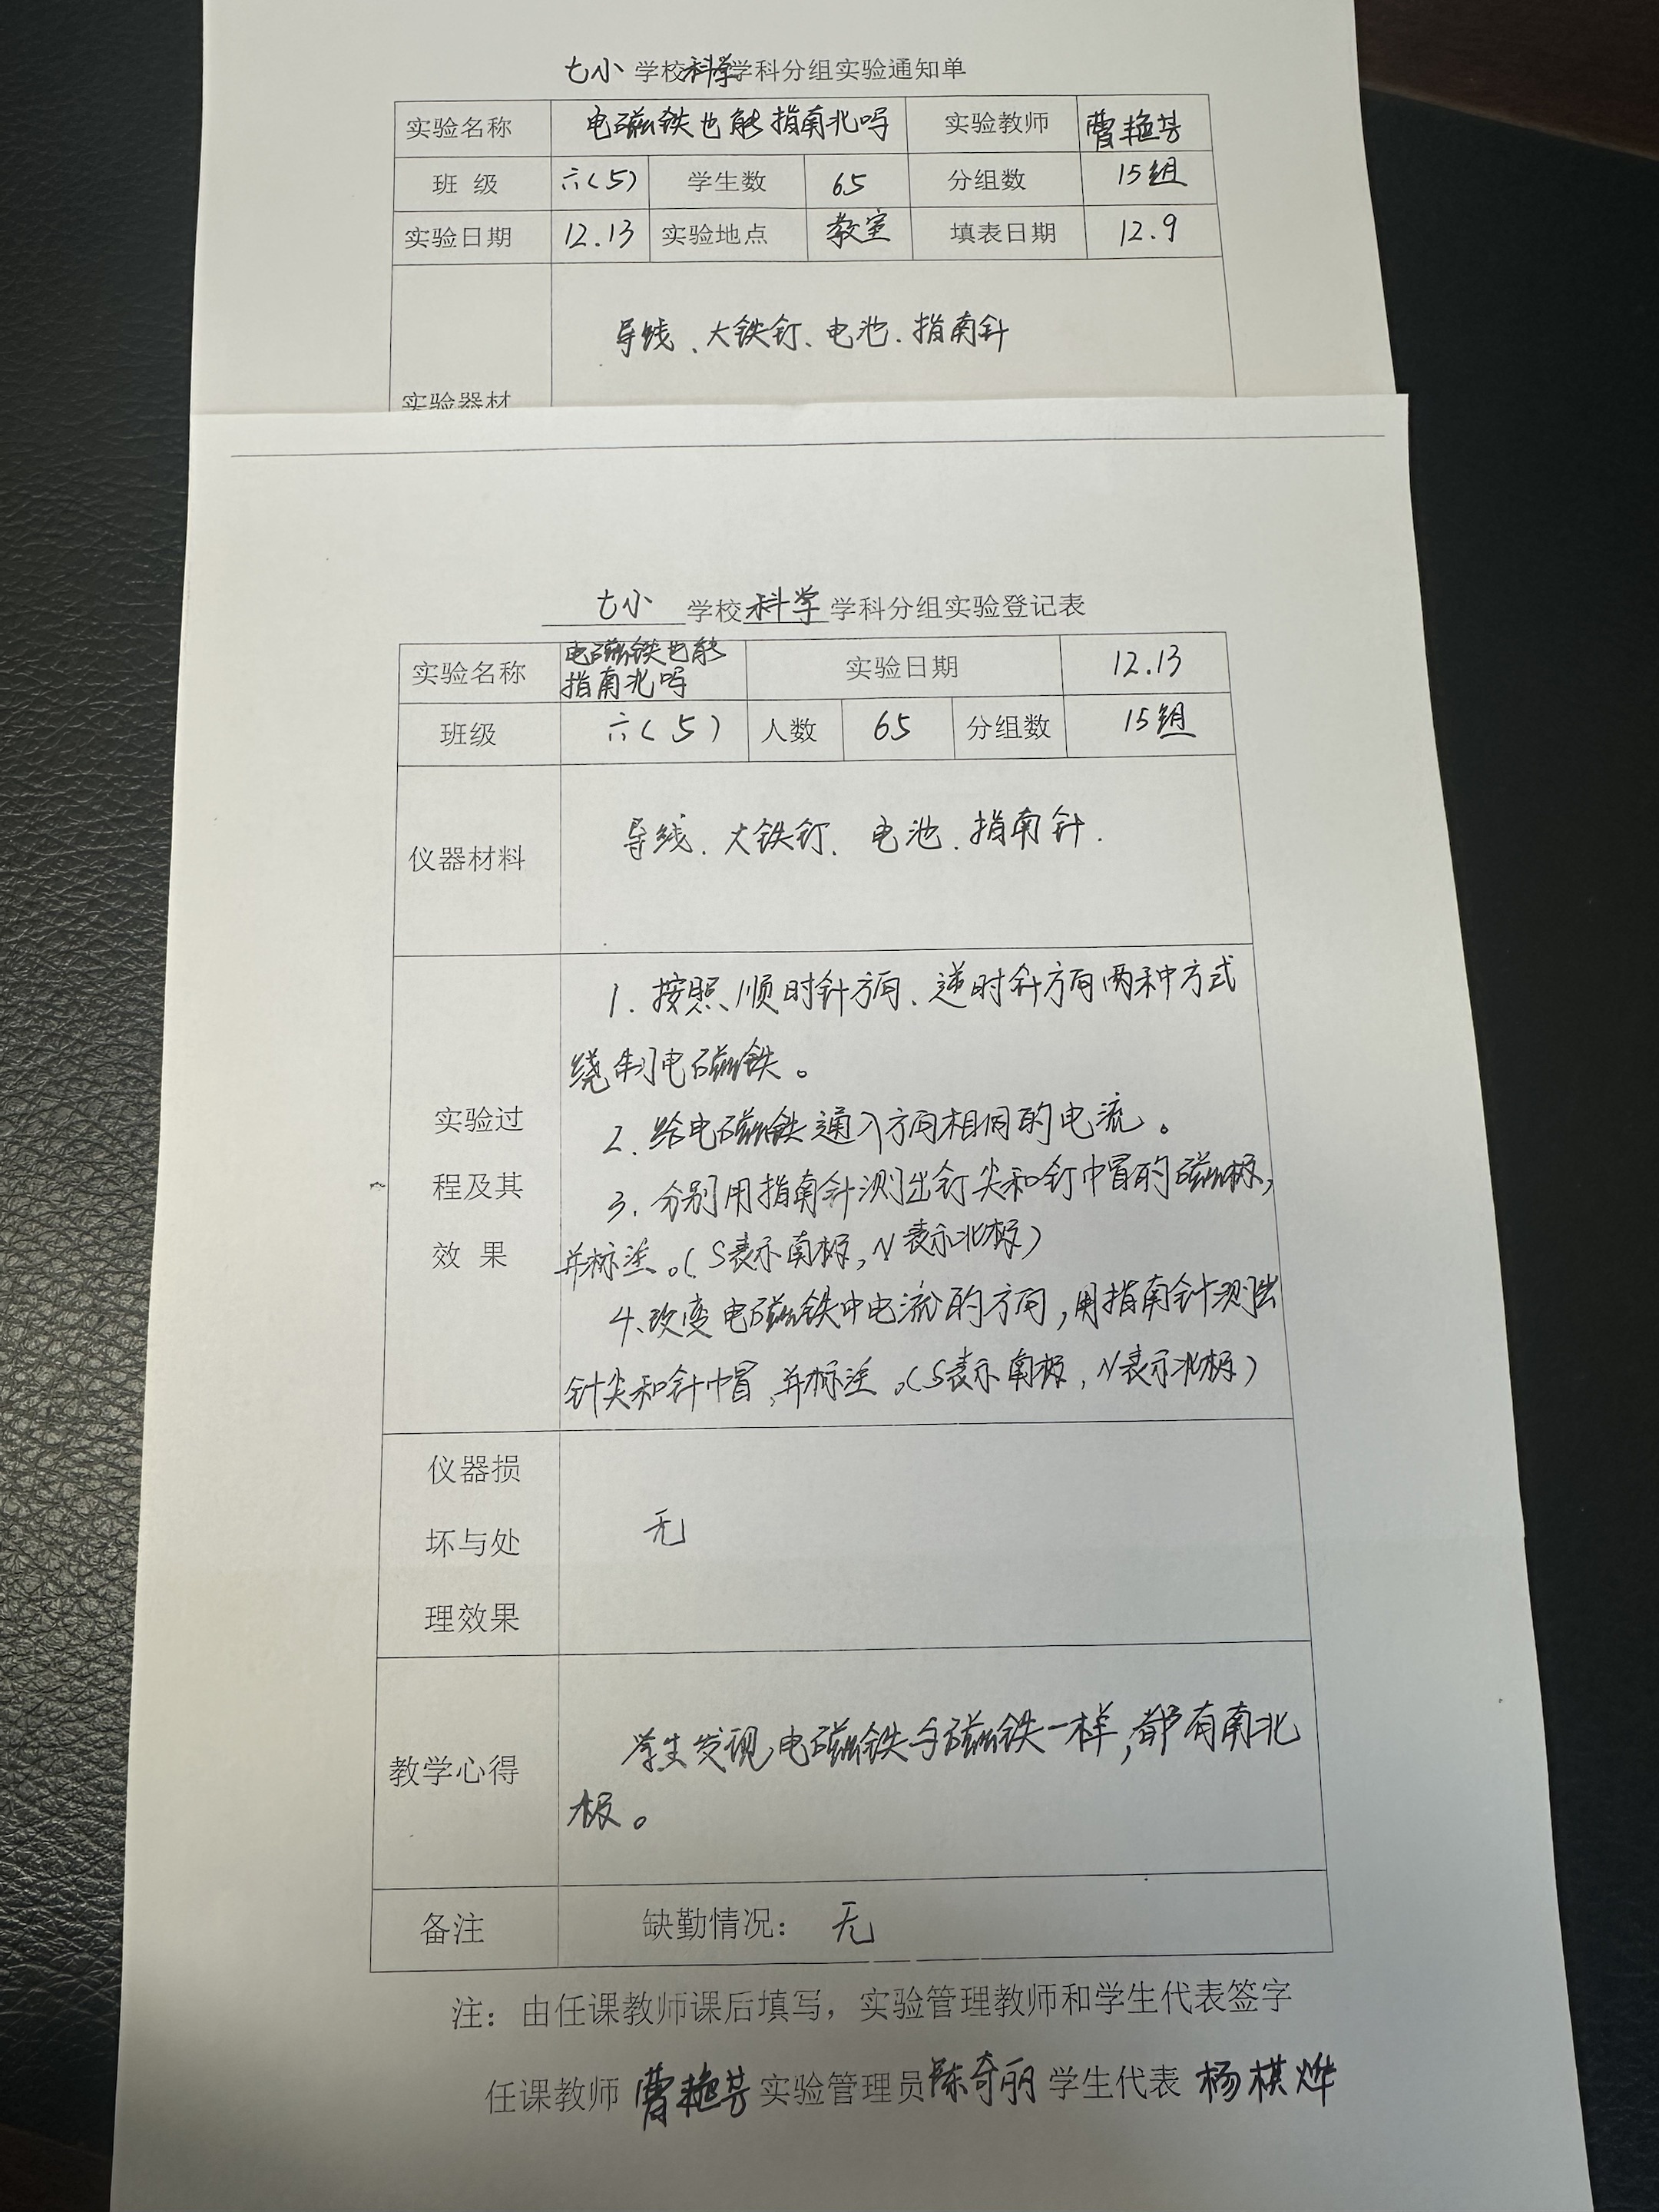 七小 学校科学学科分组实验通知单
实验名称 电磁铁也能指南北吗 实验教师 曹艳芸
班 级 六(5) 学生数 65 分组数 15组
实验日期 12.13 实验地点 教室 填表日期 12.9
导线、大铁钉、电池、指南针
实验器材
七小 学校 科学 学科分组实验登记表
实验名称 电磁铁也能 实验日期 12.13
指南北吗
班级 六(5) 人数 65 分组数 15组
仪器材料 导线、大铁钉、电池、指南针.
1. 按照顺时针方向、逆时针方向两种方式
绕制电磁铁。
实验过 2. 给电磁铁通入方向相同的电流。
程及其 3. 分别用指南针测出钉尖和钉帽的磁极,
效 果 并标注。(S表示南极,N表示北极)
4、改变电磁铁中电流的方向,用指南针测出
针尖和针帽,并标注。(S表示南极,N表示北极)
仪器损
坏与处 无
理效果
教学心得 学生发现,电磁铁与磁铁一样,都有南北
极。
备注 缺勤情况: 无
注:由任课教师课后填写,实验管理教师和学生代表签字
任课教师 曹艳芸 实验管理员 陈奇丽 学生代表 杨棋烨